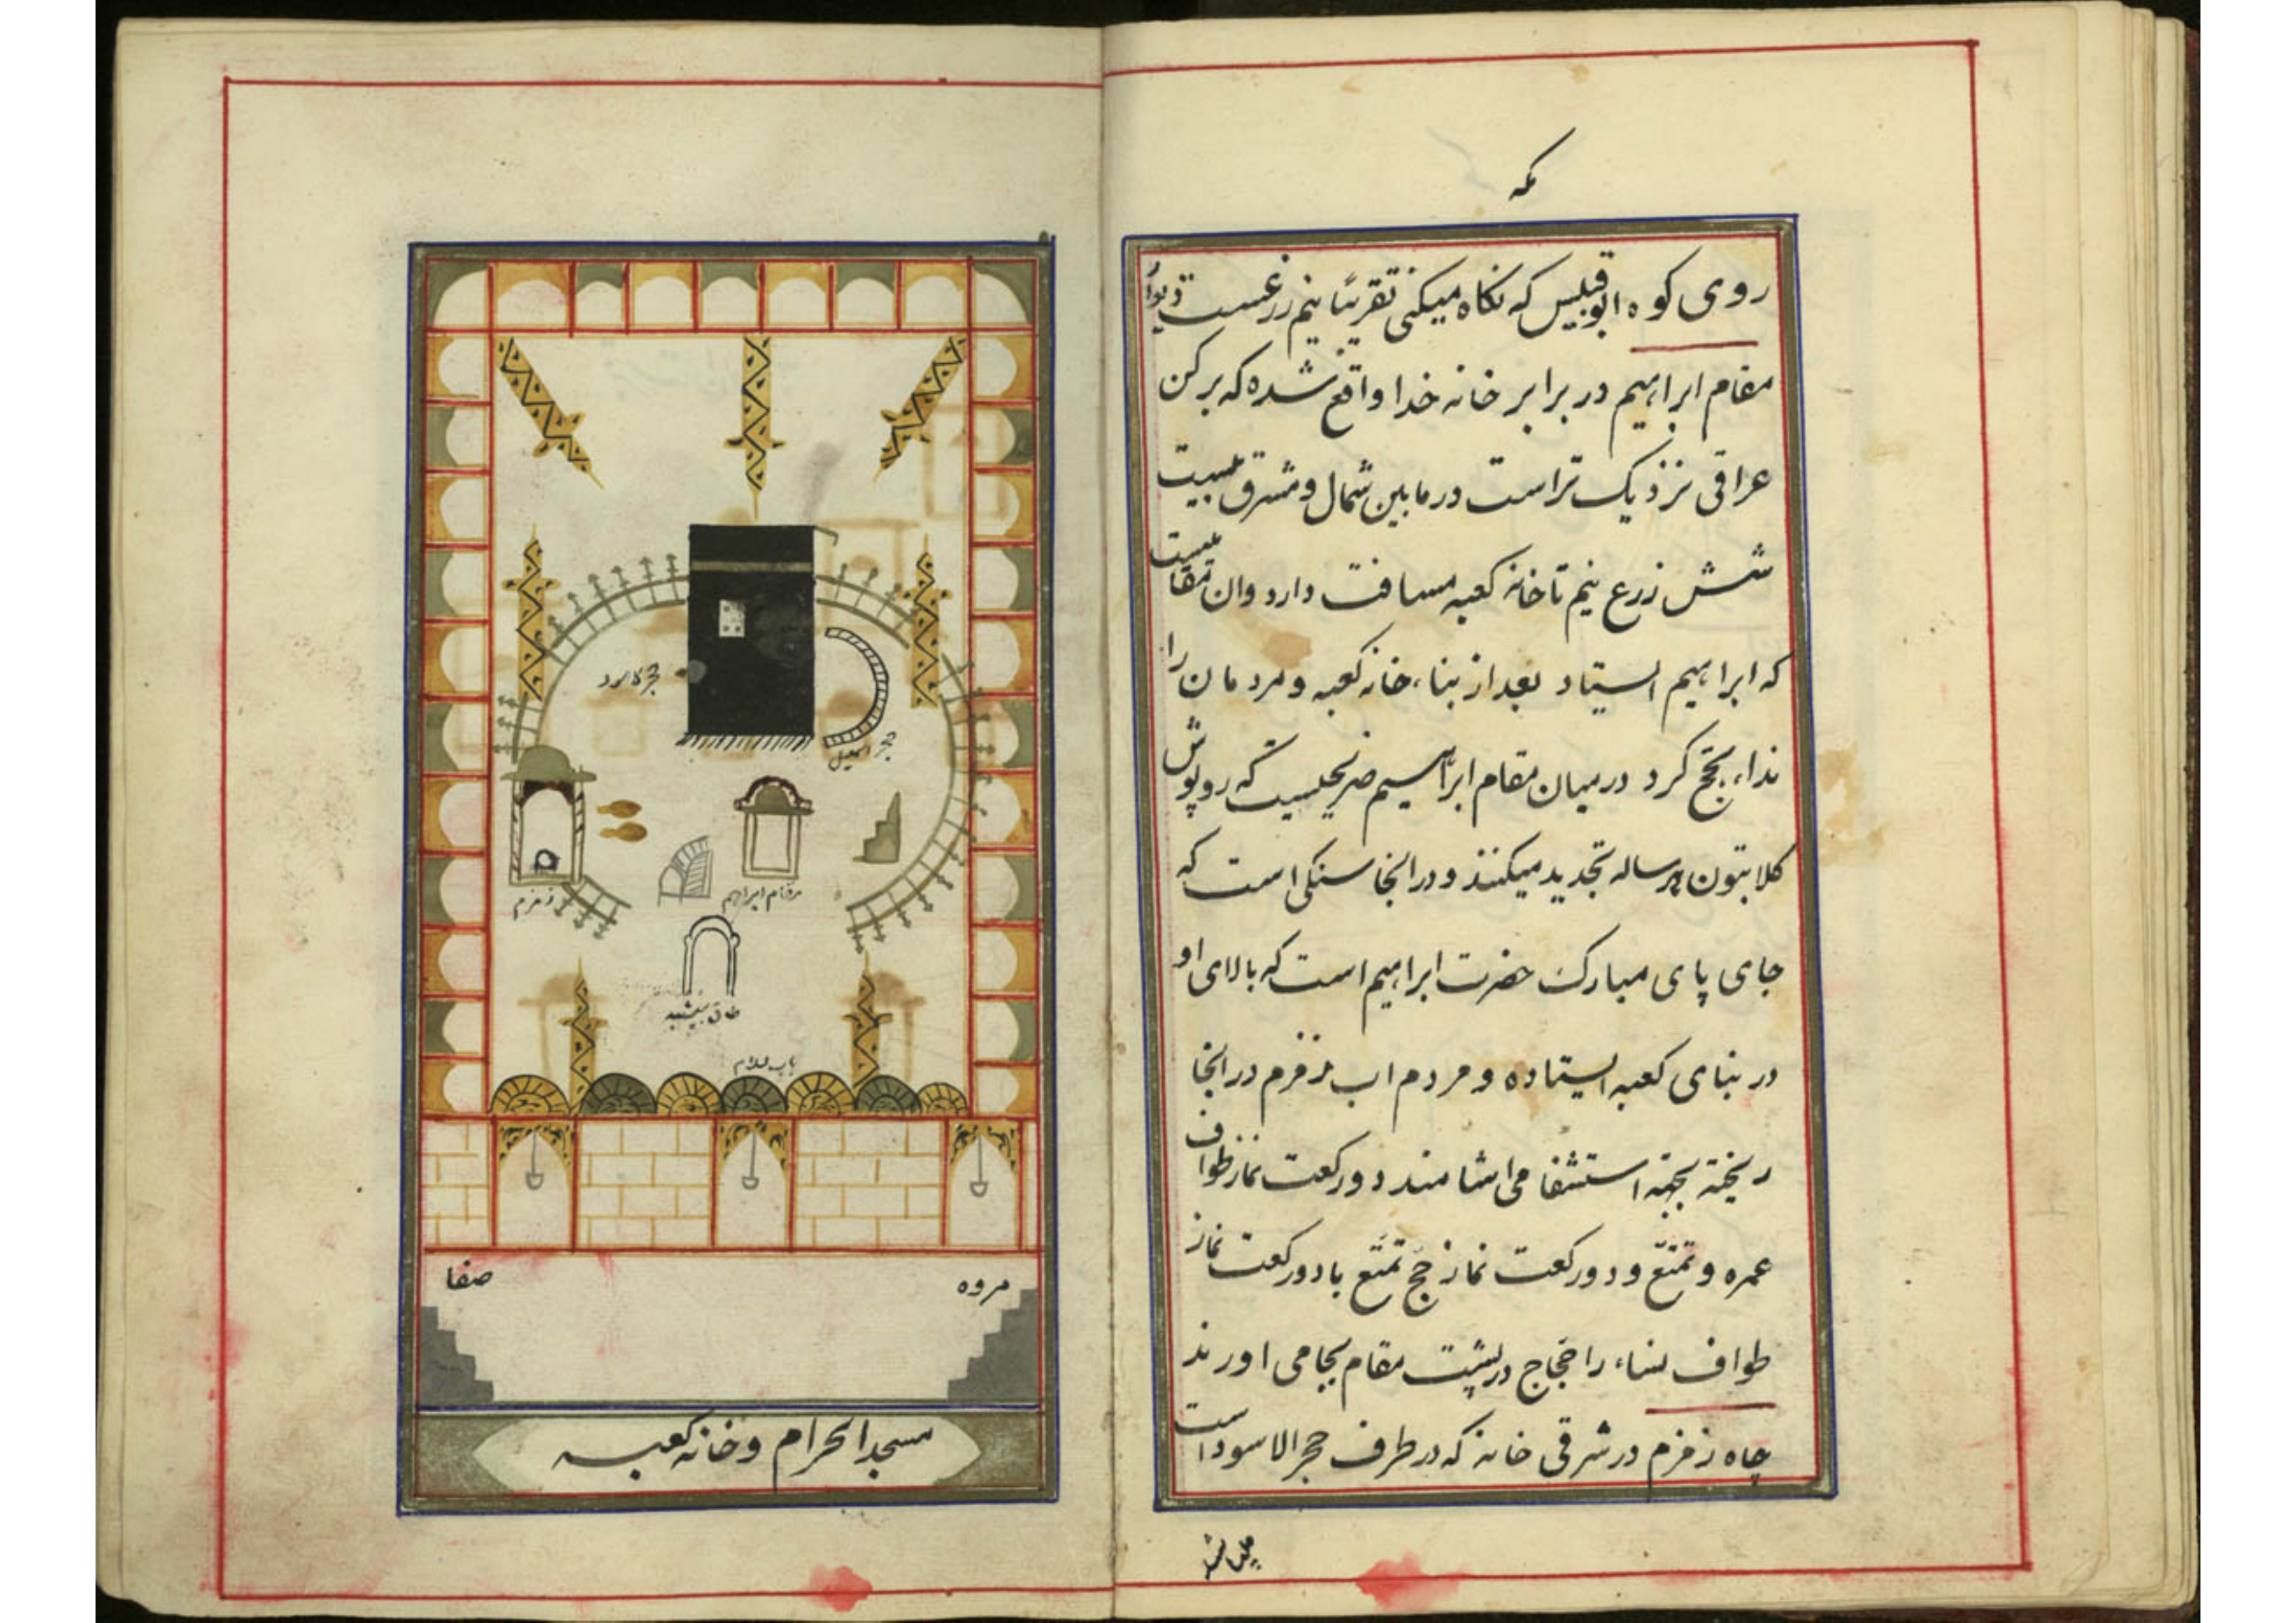 مکه
روی کوه ابوقبیس که نکاه میکنی تقریبًا نیم زرعست
مقام ابراهیم در برابر خانه خدا واقع شده که برکن
عراقی نزدیک تر است در مابین شمال و مشرق بیست
شش زرع نیم تا خانه کعبه مسافت دارد وان مقامیست
که ابراهیم ایستاد بعد از بناء خانه کعبه و مردمان را
نداء بحج کرد در میان مقام ابراهیم ضریحیست که روپوش
کلابتون هرساله تجدید میکنند و در انجا سنکی است که
جای پای مبارک حضرت ابراهیم است که بالای او
در بنای کعبه ایستاده و مردم اب زمزم در انجا
ریخته بجهة استشفا می اشامند دو رکعت نماز طواف
عمره و تمتّع و دو رکعت نماز حج تمتّع با دو رکعت نماز
طواف نساء را حجاج در پشت مقام بجا می اورند
چاه زمزم در شرقی خانه که در طرف حجر الاسود است
حجر اسمعیل
مقام ابراهیم
زمزم
باب سلام
صفا
مروه
مسجد الحرام و خانه کعبه